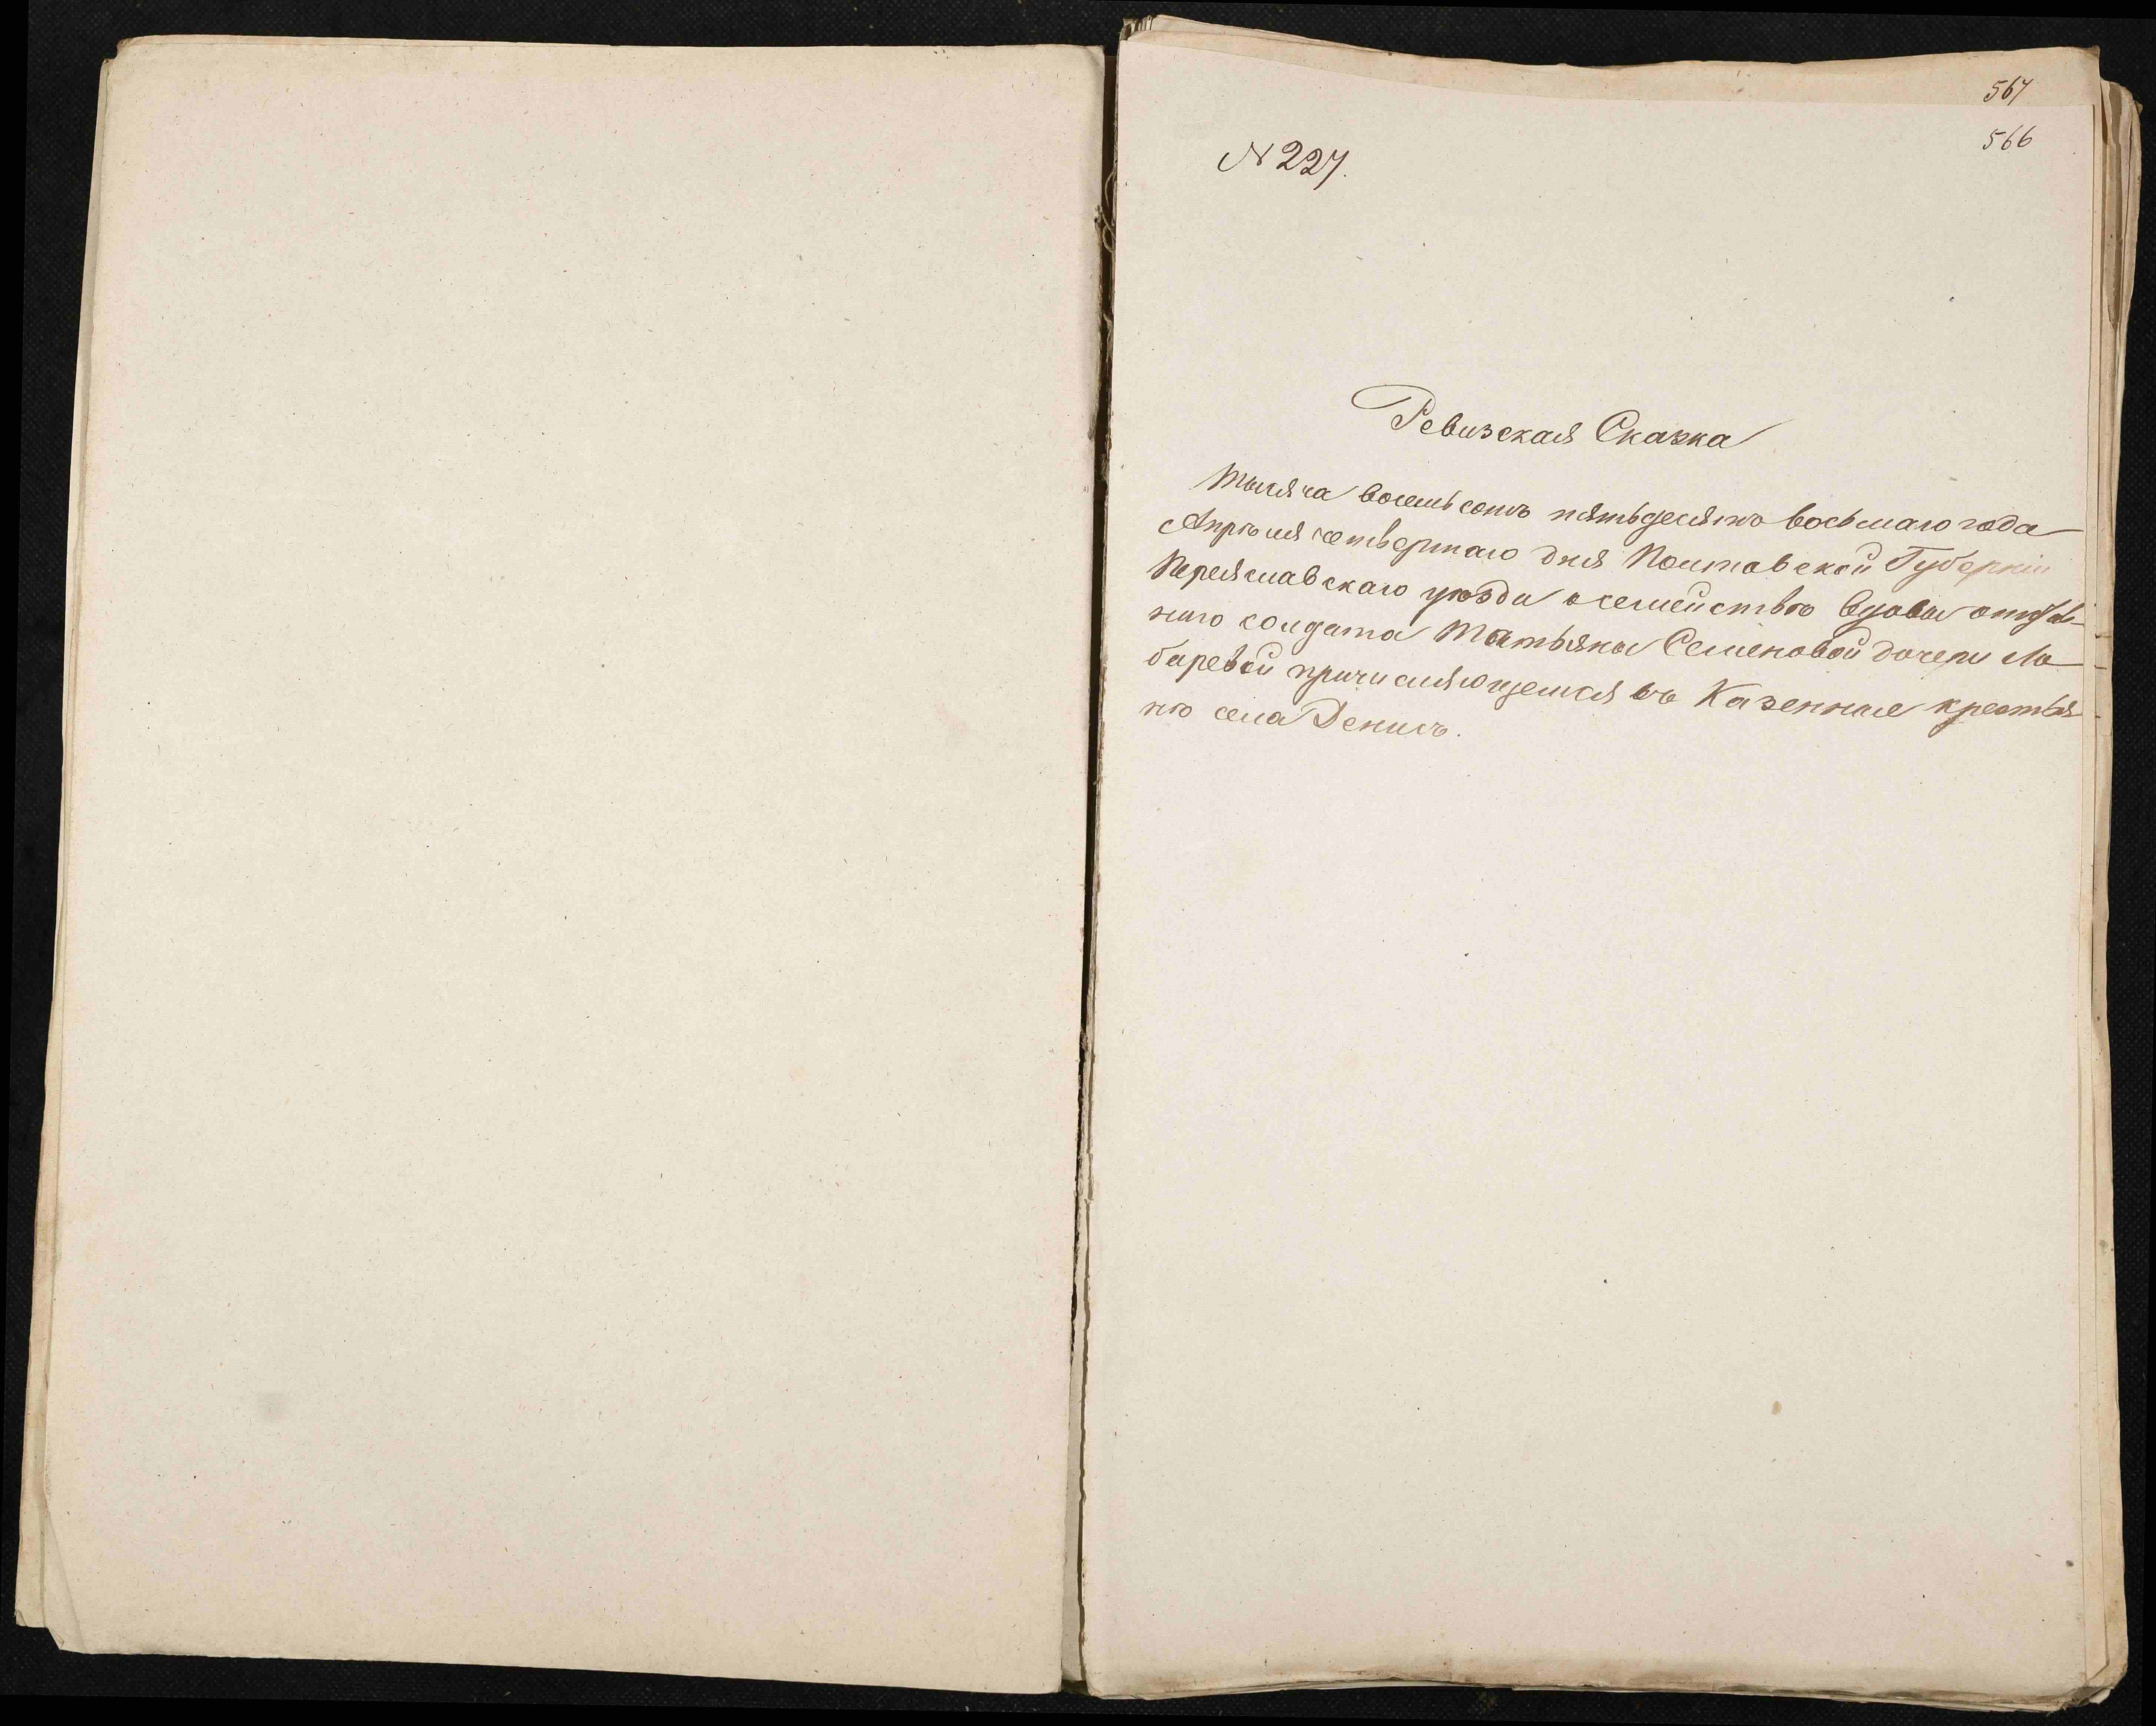 567
566
N 227.
Ревизская Сказка
Тысяча восемь сотъ пятьдесятъ восьмаго года
Апрѣля четвертаго дня Полтавской Губерніи
Переяславскаго уѣзда о семействѣ вдовы отстав-
наго солдата Татьяны Семеновой дочери Ло
баревой причисляющемся въ Казенные крестья
не села Денисъ.